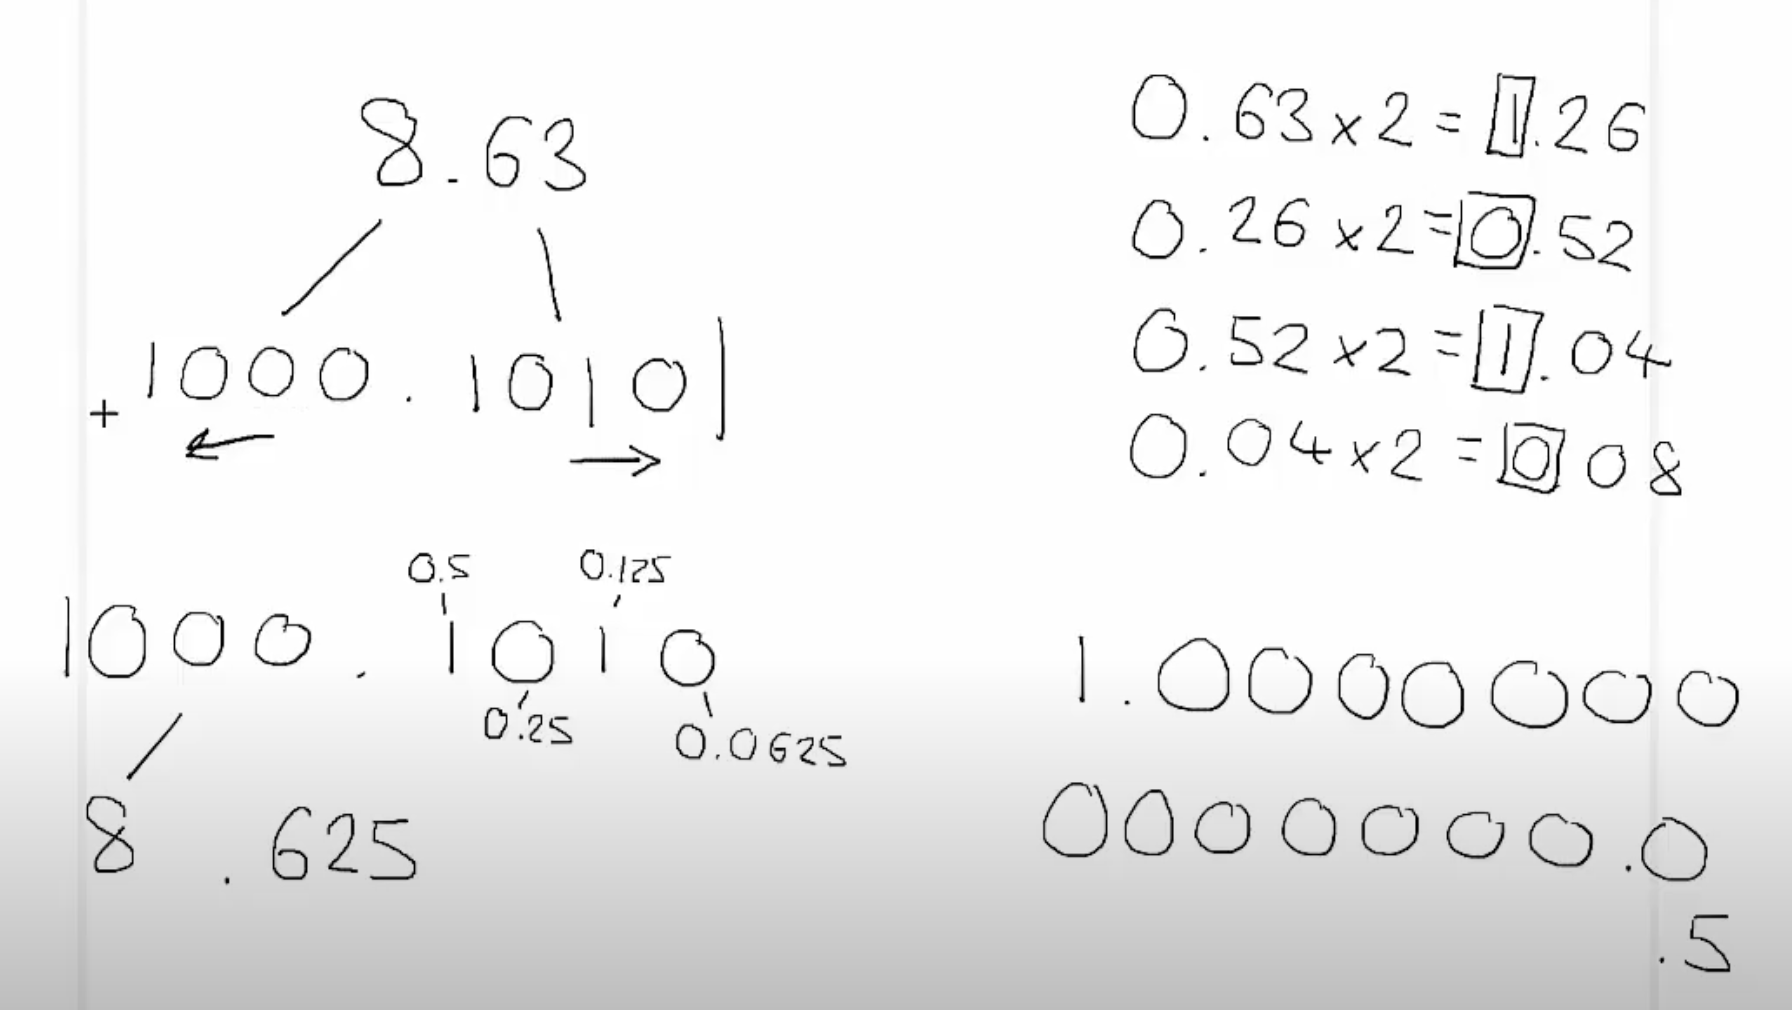 8.63
+1000.1010
0.5 0.125
1000.1010
0.25 0.0625
8.625
0.63x2=1.26
0.26x2=0.52
0.52x2=1.04
0.04x2=0 08
1.0000000
0000000.0
.5